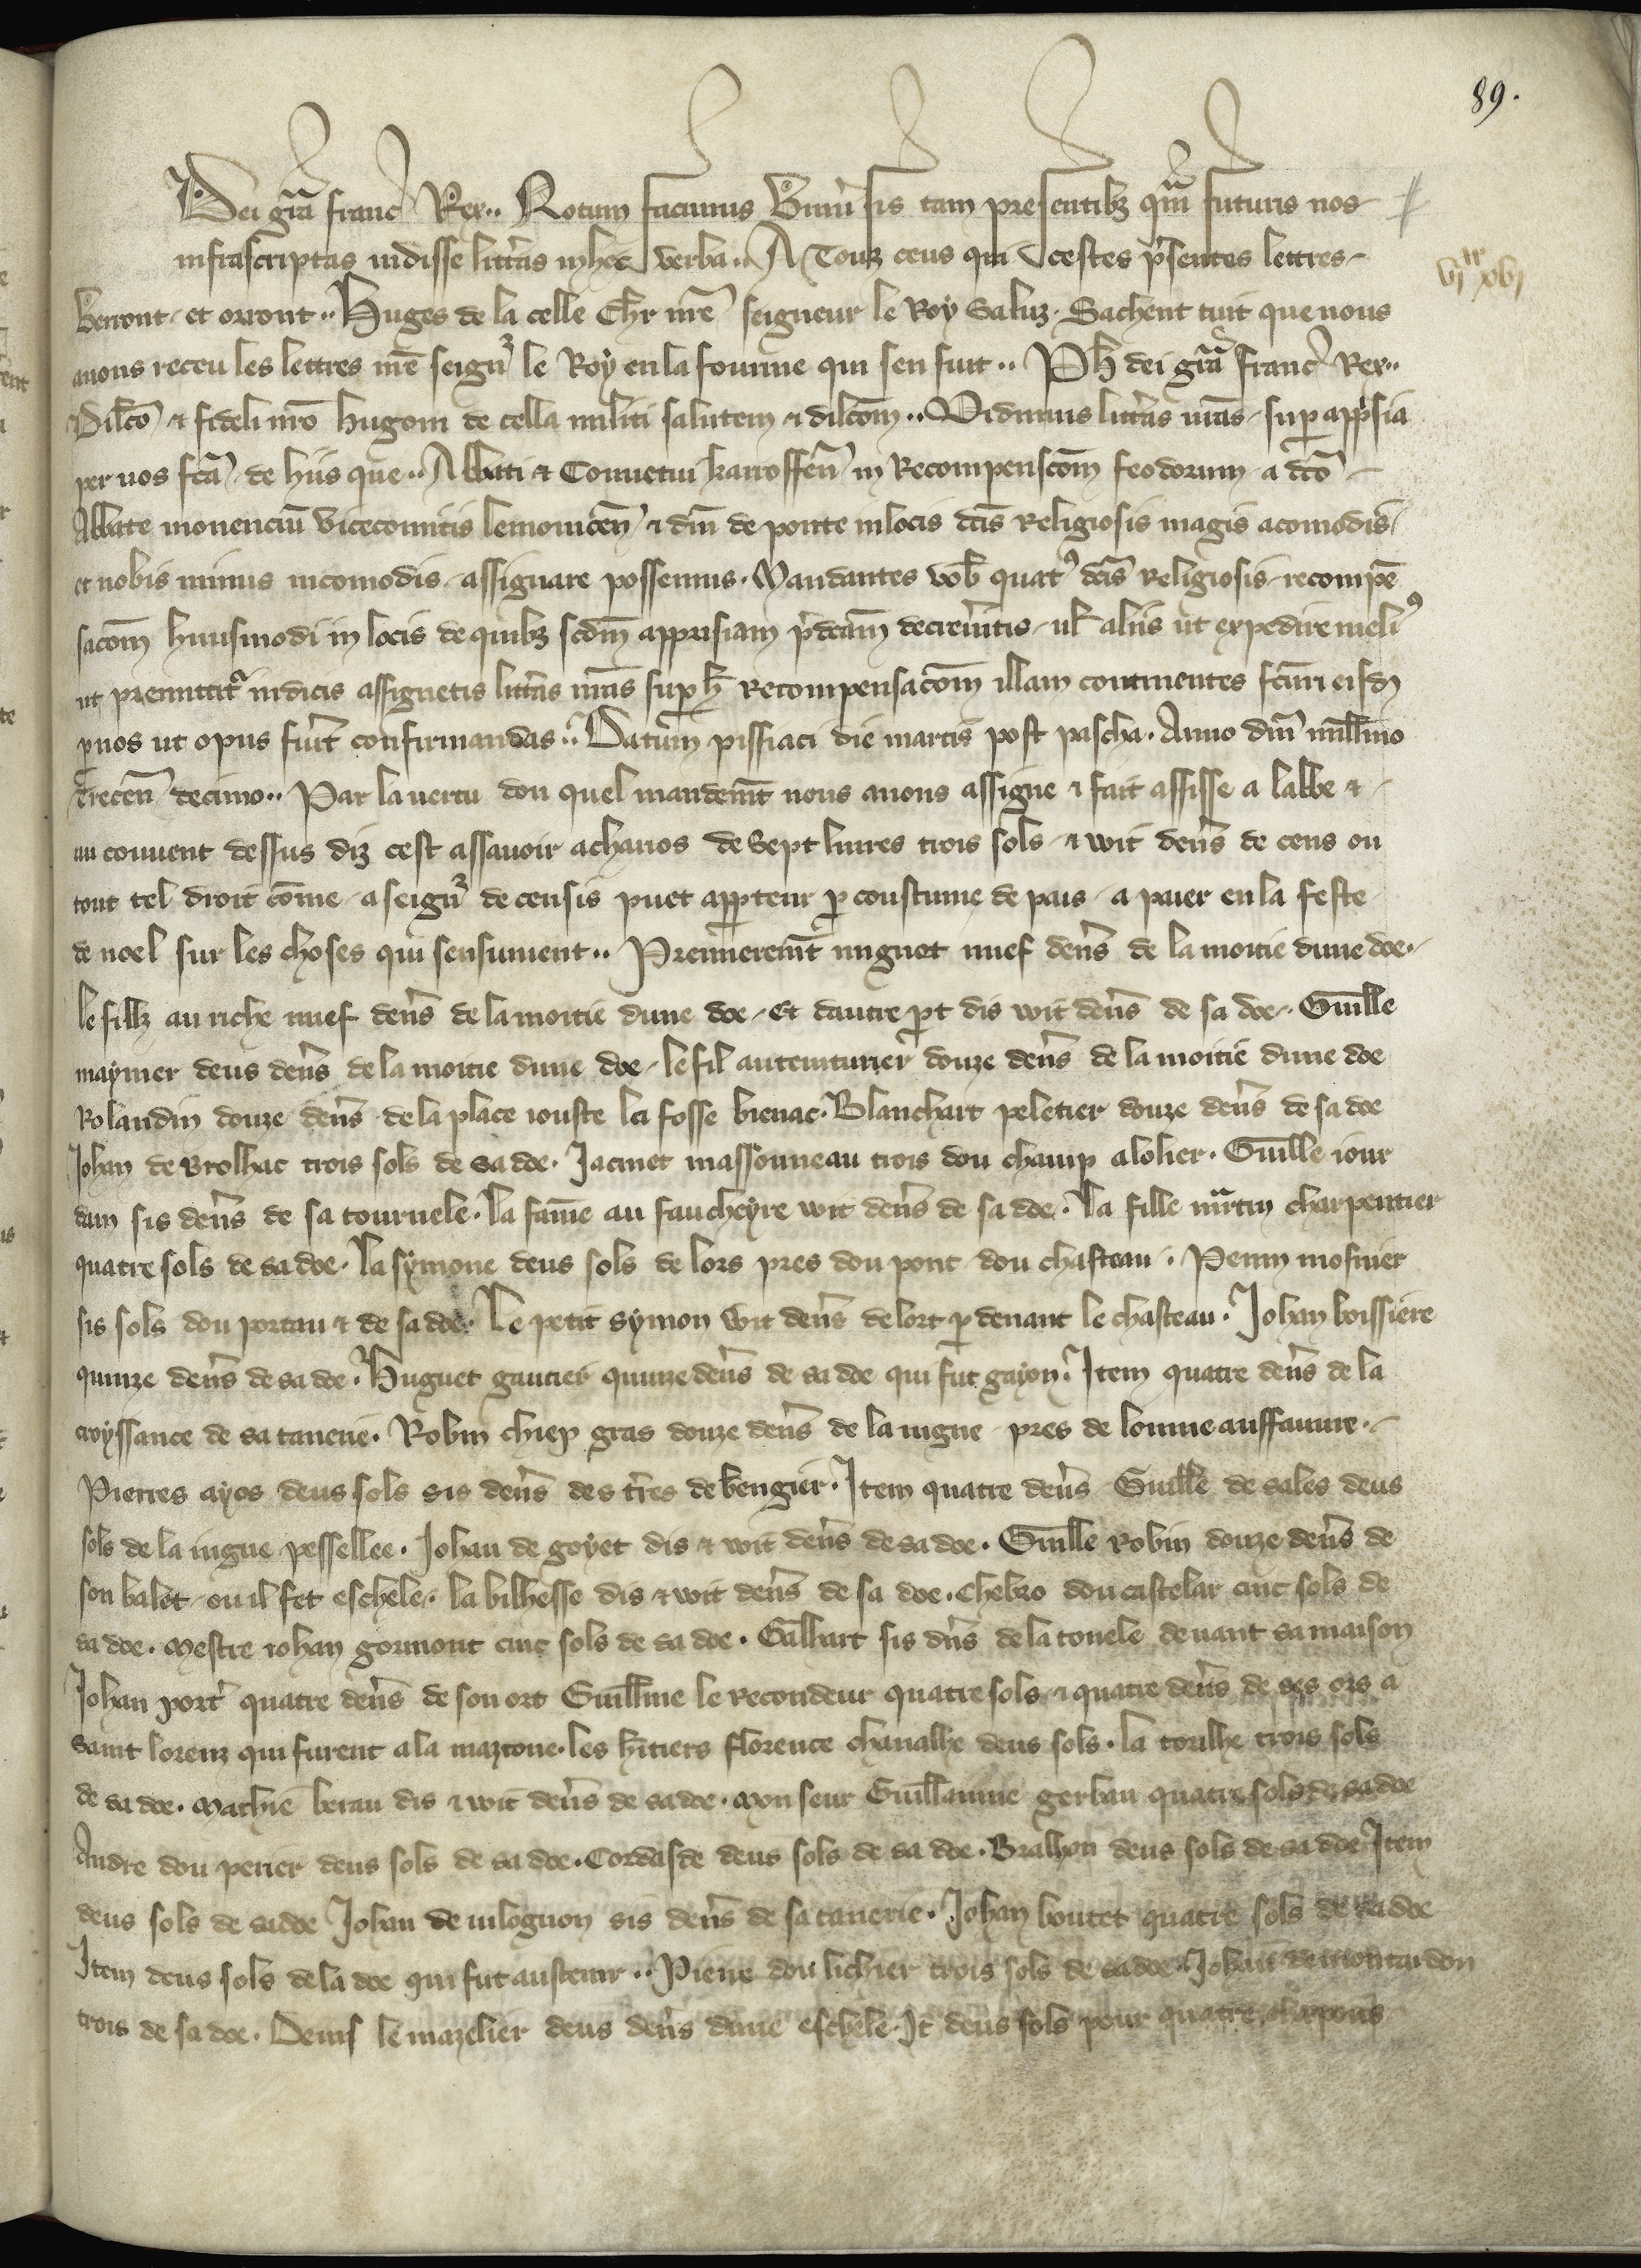 89.
Dei gra franc Rex.. Notum facimus Universis tam presentibz qm futuris nos
infrascriptas vidisse litteras in hec verba.. A Touz ceus qui cestes presentes lettres
verront et orront.. Huges de la celle Chr nre seigneur le Roy Saluz. Sachent tuit que nous
avons receu les lettres nre seignr le Roy en la fourme qui sen suit.. Ph dei gra Franc Rex..
Dilco & fideli nro hugoni de cella militi salutem & dilcom.. Vidimus litteras vras sup apprisia
per vos fca de hiis que.. Abbati & Conventui karroffen in Recompensacom feodorum a dco
Abbate movenciu vicecomitis lemovicen & dni de ponte in locis dcis Religiosis magis acomodis
et nobis minus incomodis assignare possemus. Mandantes vob quat9 dcis Religiosis recompe
sacom huiusmodi in locis de quibz scdm apprisiam pdcam decreveritis vl aliis ut expedire meli9
ut premittitr videritis assignetis litteras vras sup h Recompensacom illam continentes fcuri eisd
p nos ut opus fuerit confirmandas.. Datum pissiaci die martis post pascha. Anno dni millimo
trecen decimo.. Par la vertu dou quel mandemt nous avons assigne & fait assisse a labbe &
au couvent dessus diz cest assavoir a chavos de Sept livres trois sols & wit deners de cens ou
tout tel droit come a seignr de censis puet appartenir p coustume de pais a paier en la feste
de noel sur les choses qui sensuivent.. Premieremt mignot nuef deners de la moitie dune doe.
le fillz au riche nuef deners de la moitie dune doe. Et dautre pt dis wit deners de sa doe. Guille
maymer deus deners de la moitie dune doe. le fil au tenturier douze deners de la moitie dune doe
Rolandin douze deners de la place iouste la fosse bienac. Blanchart peletier douze deners de sa doe
Johan de Brolhac trois sols de sa doe. Jacmet massonneau trois dou champ a lolier. Guille iour
dain sis deners de sa tournele. la fame au faucheyre wit deners de sa doe. la fille martin charpentier
quatre sols de sa doe. la symone deus sols de lors pres dou pont dou chasteau. Perrin mosnier
sis sols dou portau & de sa doe. Le petit symon wit deners de lort p devant le chasteau. Johan boissiere
quinze deners de sa doe. Huguet gautier quinze deners de sa doe qui fut gayon. Item quatre deners de la
croyssance de sa tanerie. Robin chiep gras douze deners de la vigne pres de lome auffavure.
Pierres ayos deus sols sis deners des tres de bengier. Item quatre deners Guille de sales deus
sols de la vigne pessellee. Johan de goyet dis & wit deners de sa doe. Guille Robin douze deners de
son balet ou il fet eschele. la bilhesse dis & wit deners de sa doe. Chebro dou castelar cinc sols de
sa doe. Mestre iohan gormont cinc sols de sa doe. Galhart sis dns de la tonele devant sa maison
Johan porter quatre deners de son ort Guillme le recondeur quatre sols & quatre deners de ses ors a
saint lorenz qui furent a la mazcone. les heritiers florence chavalhe deus sols. la torilhe trois sols
de sa doe. Mathie berau dis & wit deners de sa doe. Mon seur Guillaume gerbau quatre sols de sa doe
Andre dou perier deus sols de sa doe. Cordasde deus sols de sa doe. Bralhon deus sols de sa doe Item
deus sols de sa doe Johan de vilognon sis deners de sa tanerie. Johan boutet quatre sols de sa doe
Item deus sols de la doe qui fut austenir.. Pierre dou lichier trois sols de sa doe. Johan de montaudon
trois de sa doe. Denis le mazelier deus deners dune eschele. It deus sols pour quatre